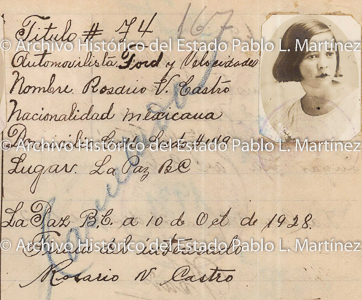 Titulo # 74 167
Automovilista Ford y Velocidades
Nombre Rosario V. Castro
Nacionalidad mexicana
Domicilio
Lugar. La Paz B.C
La Paz, B.C. a 10 de Oct de 1928.
Firma del interesado
Rosario V Castro
© Archivo Histórico del Estado Pablo L. Martínez
© Archivo Histórico del Estado Pablo L. Martínez
© Archivo Histórico del Estado Pablo L. Martínez